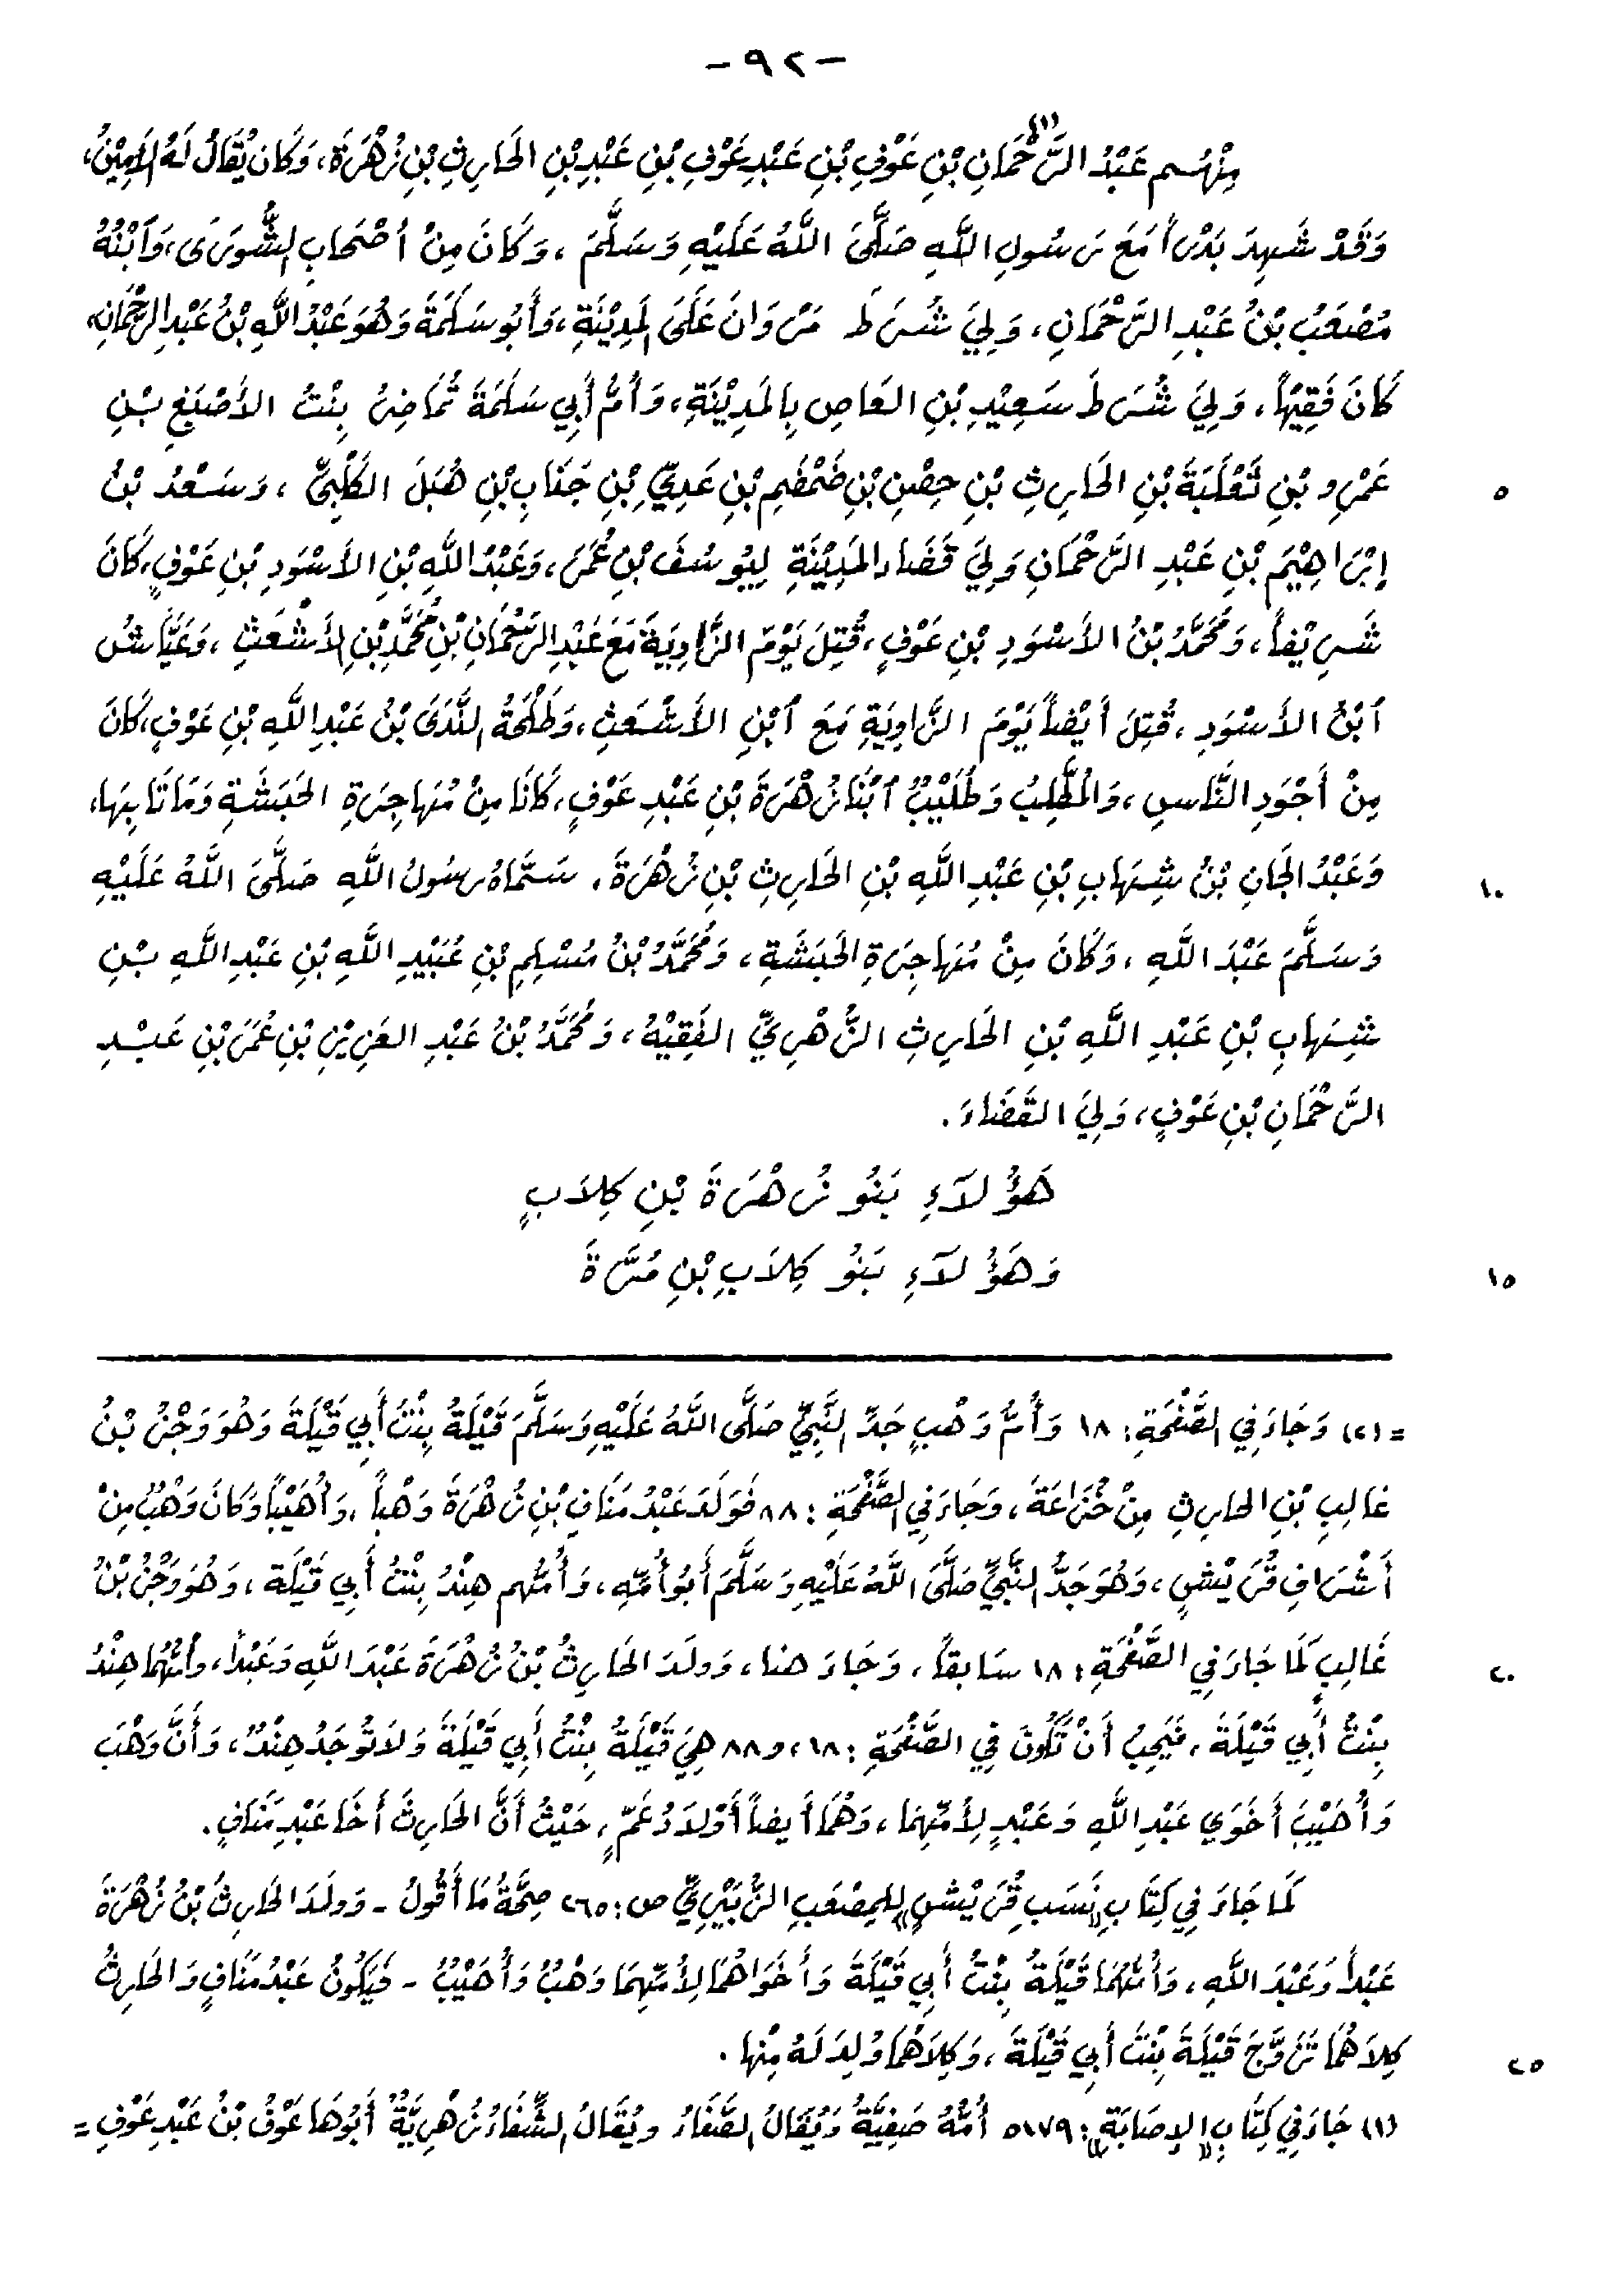 -٩٢-
مِنْهُم عَبْدُ الرَّحْمَانِ(١) بْنِ عَوْفِ بْنِ عَبْدِ عَوْفِ بْنِ عَبْدِ بْنِ الحَارِثِ بْنِ زُهْرَةَ، وَكَانَ يُقَالُ لَهُ الأَمِيْنُ،
وَقَدْ شَهِدَ بَدْراً مَعَ رَسُولِ اللَّهِ صَلَّىَ اللَّهُ عَلَيْهِ وَسَلَّمَ، وَكَانَ مِنْ أصْحَابِ الشُّورَىَ، وَٱبْنُهُ
مُصْعَبُ بْنُ عَبْدِ الرَّحْمَانِ، وَلِيَ شُرَطَ مَرْوَانَ عَلَىَ المَدِيْنَةِ، وَأَبُو سَلَمَةَ وَهُوَ عَبْدُ اللَّهِ بْنُ عَبْدِ الرَّحْمَانِ،
كَانَ فَقِيْهاً، وَلِيَ شُرَطَ سَعِيْدِ بْنِ العَاصِ بِالمَدِيْنَةِ، وَأُمُّ أَبِي سَلَمَةَ تُمَاضِرُ بِنْتُ الأَصْبَغِ بْنِ
عَمْرِو بْنِ ثَعْلَبَةَ بْنِ الحَارِثِ بْنِ حِصْنِ بْنِ ضَمْضَمِ بْنِ عَدِيِّ بْنِ جَنَابِ بْنِ هُبَلَ الكَلْبِيِّ، وَسَعْدُ بْنُ
٥
إِبْرَاهِيْمَ بْنِ عَبْدِ الرَّحْمَانِ وَلِيَ قَضَاءَ المَدِيْنَةِ لِيُوسُفَ بْنِ عُمَرَ، وَعَبْدُ اللَّهِ بْنِ الأَسْوَدِ بْنِ عَوْفٍ، كَانَ
شَرِيْفاً، وَمُحَمَّدُ بْنُ الأَسْوَدِ بْنِ عَوْفٍ، قُتِلَ يَوْمَ الزَّاوِيَةَ مَعَ عَبْدِ الرَّحْمَانِ بْنِ مُحَمَّدِ بْنِ الأَشْعَثِ، وَعَيَّاشُ
ٱبْنُ الأَسْوَدِ، قُتِلَ أَيْضاً يَوْمَ الزَّاوِيَةِ مَعَ ٱبْنِ الأَشْعَثِ، وَطَلْحَةُ النَّدَىَ بْنُ عَبْدِ اللَّهِ بْنِ عَوْفٍ، كَانَ
مِنْ أَجْوَدِ النَّاسِ، وَالمُطَّلِبُ وَطُلَيْبٌ ٱبْنَا زُهْرَةَ بْنِ عَبْدِ عَوْفٍ، كَانَا مِنْ مُهَاجِرَةِ الحَبَشَةِ وَمَاتَا بِهَا،
وَعَبْدُ الجَانِ بْنُ شِهَابِ بْنِ عَبْدِ اللَّهِ بْنِ الحَارِثِ بْنِ زُهْرَةَ، سَمَّاهُ رسُولُ اللَّهِ صَلَّىَ اللَّهُ عَلَيْهِ
١٠
وَسَلَّمَ عَبْدَ اللَّهِ، وَكَانَ مِنْ مُهَاجِرَةِ الحَبَشَةِ، وَمُحَمَّدُ بْنُ مُسْلِمِ بْنِ عُبَيْدِ اللَّهِ بْنِ عَبْدِ اللَّهِ بْنِ
شِهَابِ بْنِ عَبْدِ اللَّهِ بْنِ الحَارِثِ الزُّهْرِيِّ الفَقِيْهُ، وَمُحَمَّدُ بْنُ عَبْدِ العَزِيْزِ بْنِ عُمَرَ بْنِ عَبْدِ
الرَّحْمَانِ بْنِ عَوْفٍ، وَلِيَ القَضَاءَ.
هَؤُلاَءِ بَنُو زُهْرَةَ بْنِ كِلاَبٍ
وَهَؤُلاَءِ بَنُو كِلاَبِ بْنِ مُرَّةَ
١٥
= (٢) وَجَاءَ فِي الصَّفْحَةِ: ١٨ وَأُمُّ وَهْبٍ جَدِّ النَّبِيِّ صَلَّى اللَّهُ عَلَيْهِ وَسَلَّمَ قَيْلَةُ بِنْتُ أَبِي قَيْلَةَ وَهُوَ وَجْزُ بْنُ
غالِبِ بْنِ الحارِثِ مِنْ خُزَاعَةَ، وَجَاءَ فِي الصَّفْحَةِ: ٨٨ فَوَلَدَ عَبْدُ مَنَافِ بْنِ زُهْرَةَ وَهْباً، وَأُهَيْباً وَكَانَ وَهْبٌ مِنْ
أَشْرَافِ قُرَيْشٍ، وَهُوَ جَدُّ النَّبِيِّ صَلَّىَ اللَّهُ عَلَيْهِ وَسَلَّمَ أَبُو أُمِّهِ، وَأُمُّهم هِنْدُ بِنْتُ أَبِي قَيْلَةَ، وَهُوَ وَجْزُ بْنُ
غَالِبٍ كَمَا جَاءَ فِي الصَّفْحَةِ: ١٨ سَابقاً، وَجَاءَ هنا، وَولَدَ الحَارِثُ بْنُ زُهْرَةَ عَبْدَ اللَّهِ وَعَبْداً، وأُمُّهُمَا هِنْدُ
٢٠
بِنْتُ أَبِي قَيْلَةَ، فَيَجِبُ أَنْ تَكُونَ فِي الصَّفْحَةِ: ١٨، و٨٨ هِيَ قَيْلَةُ بِنْتُ أَبِي قَيْلَةَ وَلاَ تُوجَدُ هِنْدٌ، وَأَنَّ وَهْبَ
وَأُهَيْبَ أَخَوَي عَبْدِ اللَّهِ وَعَبْدٍ لِأُمِّهِمَا، وَهُمَا أَيضاً أَوْلاَدُ عَمٍّ، حَيْثُ أَنَّ الحَارِثَ أَخَا عَبْدِ مَنَافٍ.
كَمَا جَاءَ فِي كِتَابِ «نَسَبِ قُرَيْشٍ» لِلمِصْعَبِ الزُّبَيْرِيِّ ص: ٢٦٥ صِحَّةُ مَا أَقُولُ - وَولَدَ الحَارِثُ بْنُ زُهْرَةَ
عَبْداً وَعَبْدَ اللَّهِ، وَأُمُّهُمَا قَيْلَةُ بِنْتُ أَبِي قَيْلَةَ وَأَخَوَاهُمَا لِأُمِّهِمَا وَهْبٌ وَأُهَيْبٌ - فَيَكُونُ عَبْدُ مَنَافٍ وَالحَارِثُ
كِلاَهُمَا تَزَوَّجَ قَيْلَةَ بِنْتَ أَبِي قَيْلَةَ، وَكِلاَهُمَا وُلِدَ لَهُ مِنْها.
٢٥
(١) جَاءَ فِي كِتَابِ «الإِصَابَةِ»: ٥١٧٩ أُمُّهُ صَفِيَّةُ وَيُقَالُ الصَّفَاءُ ويُقَالُ الشِّفَاءُ زُهْرِيَّةٌ أَبُوهَا عَوْفُ بْنُ عَبْدِ عَوْفٍ =